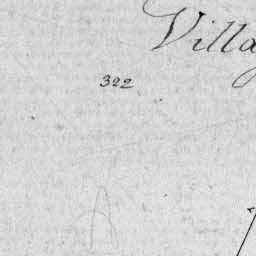 Villa
322